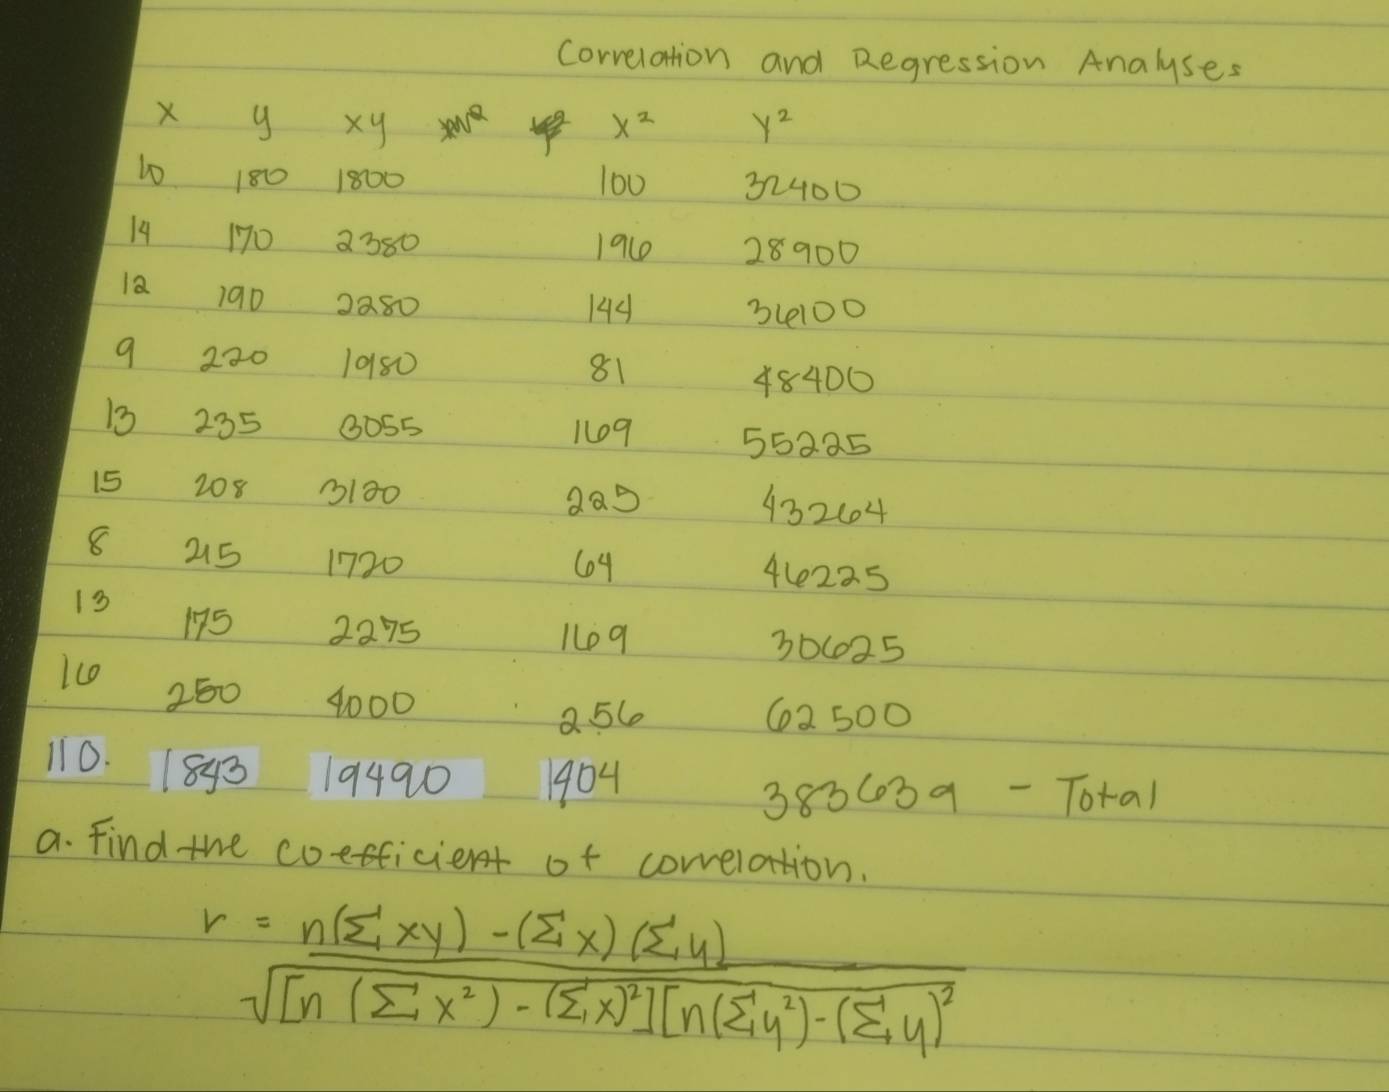 Correlation and Regression Analyses
x y xy x² y²
10 180 1800 100 32400
14 170 2380 196 28900
12 190 2280 144 36100
9 220 1980 81 48400
13 235 3055 169 55225
15 208 3120 225 43264
8 215 1720 64 46225
13 175 2275 169 30625
16 250 4000 256 62500
110. 1843 19490 1404 383639 - Total
a. Find the coefficient of correlation.
r = n(Σxy) - (Σx)(Σy)
√[n(Σx²) - (Σx)²][n(Σy²) - (Σy)²